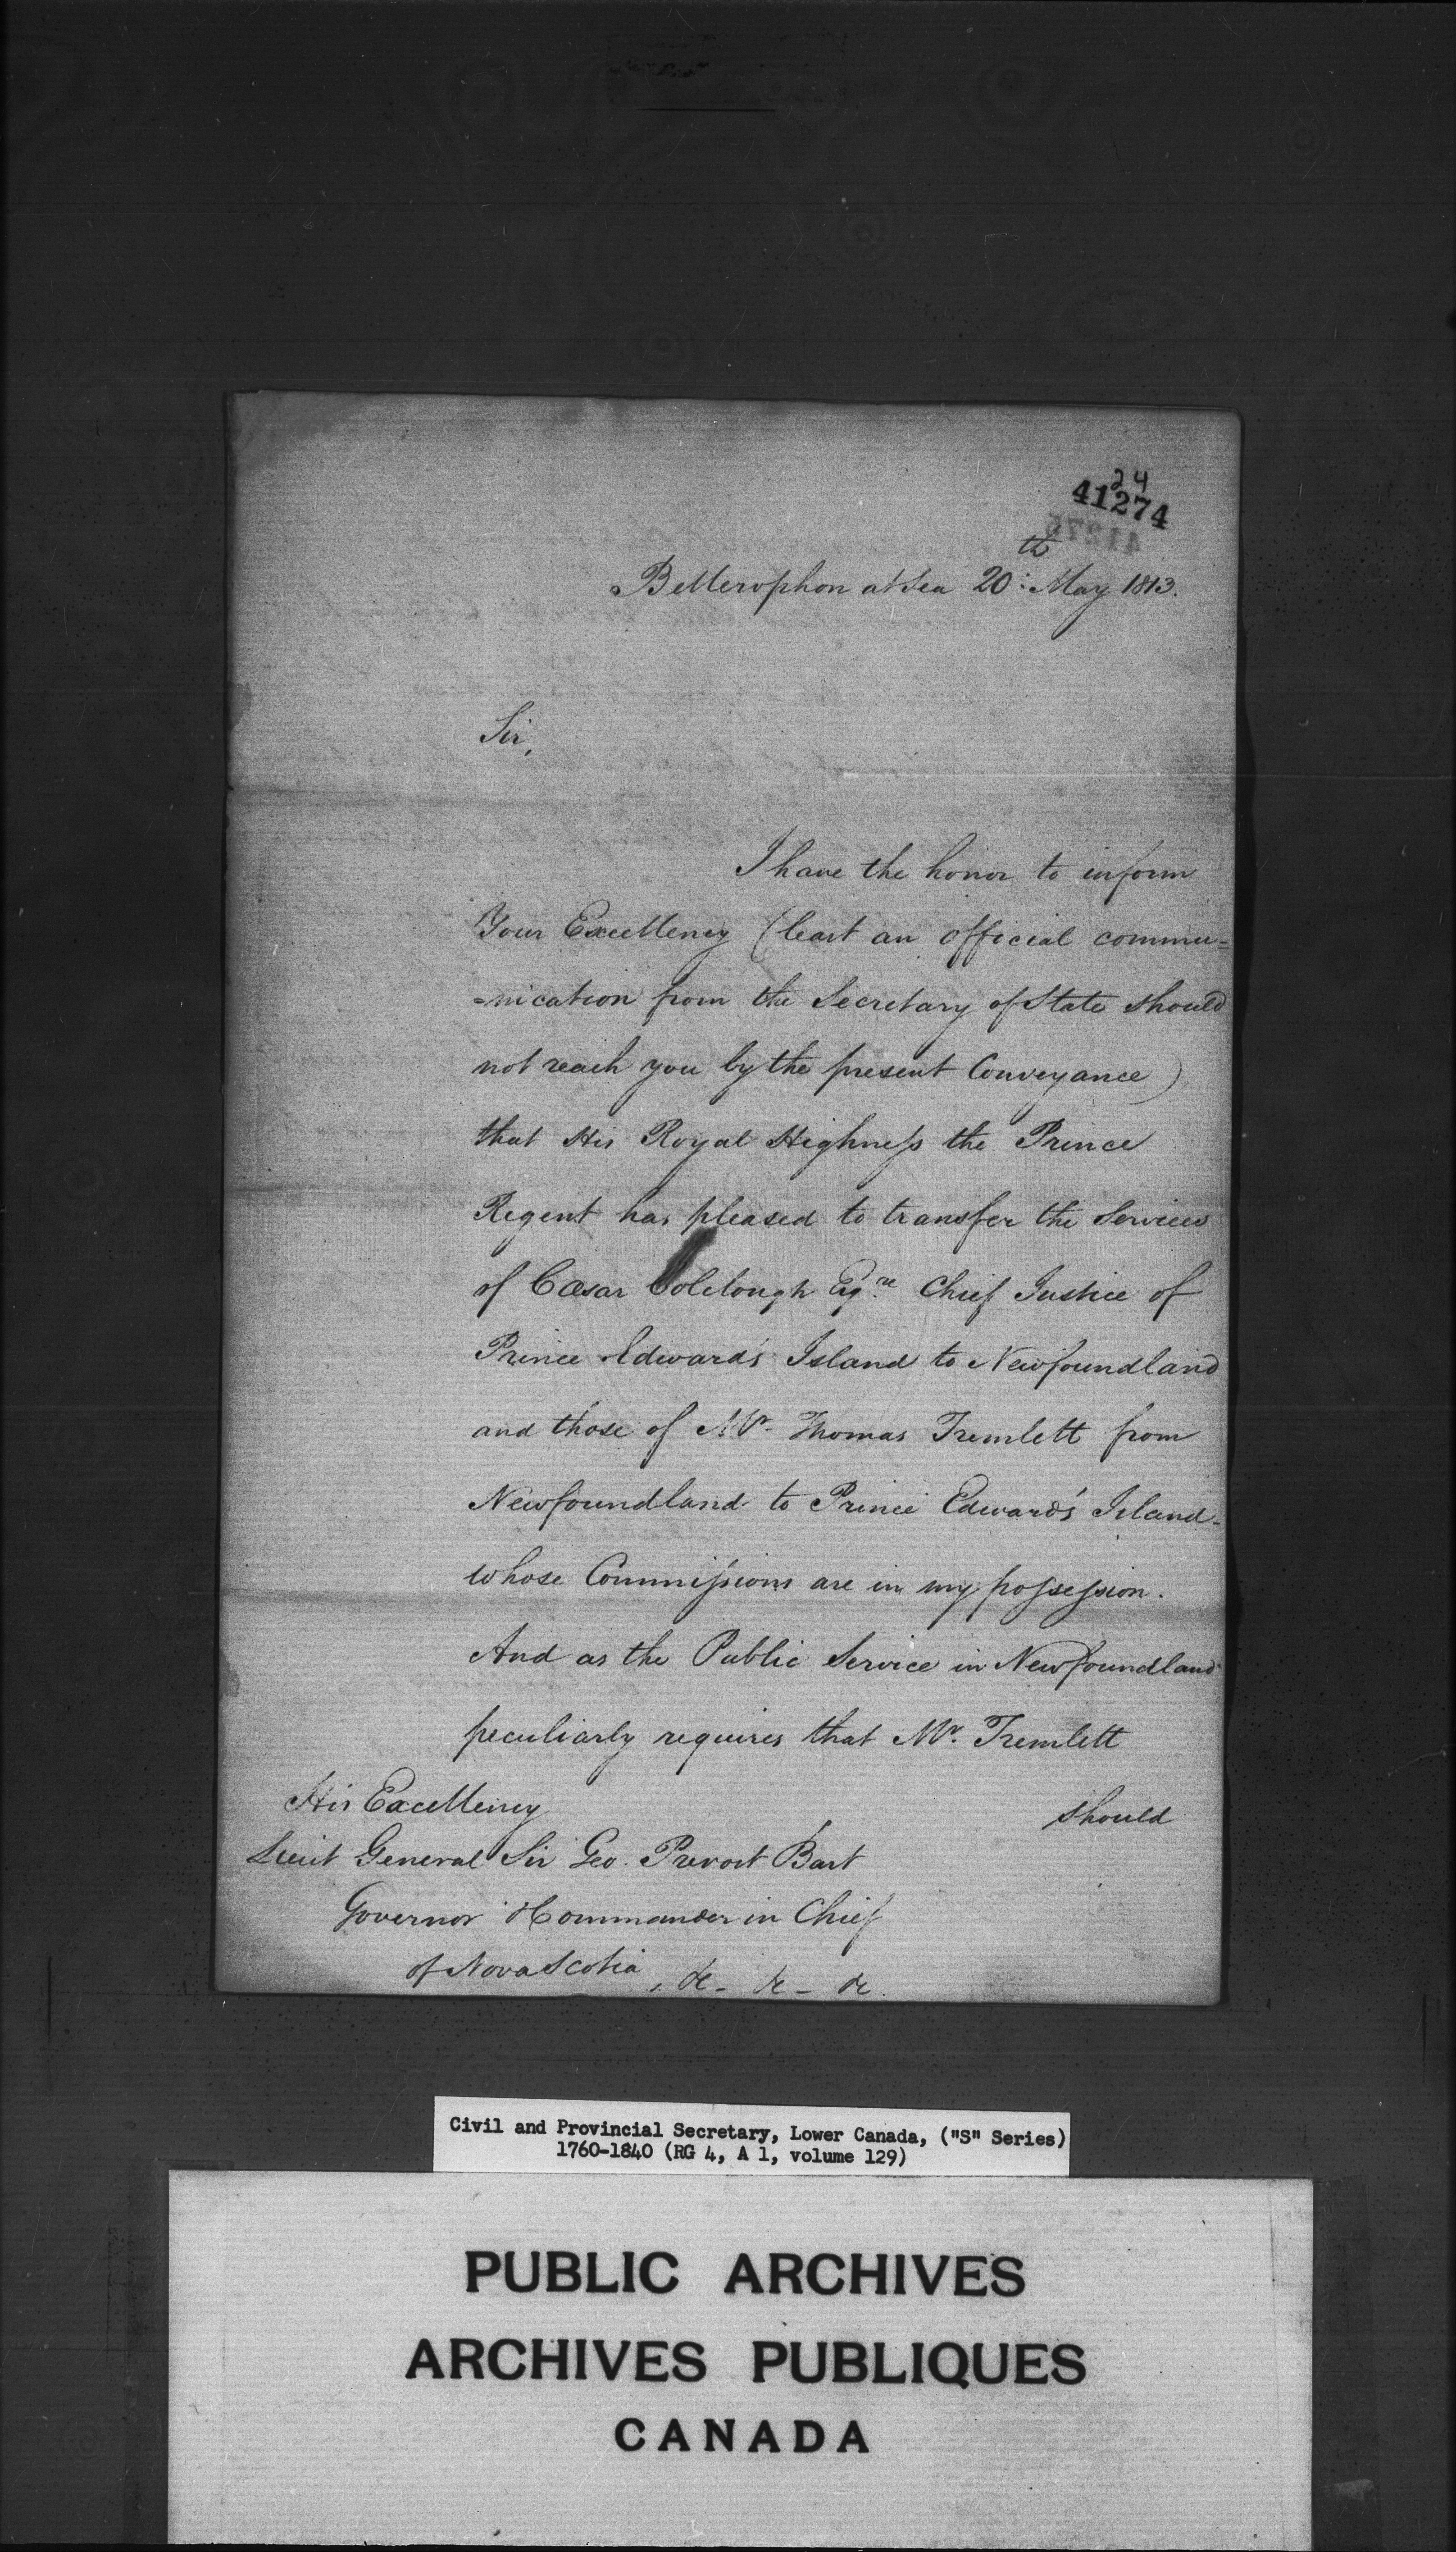 24
41274
Bellerophon at Sea 20th May 1813.
Sir,
I have the honor to inform
Your Excellency (least an official commu=
=nication from the Secretary of State should
not reach you by the present Conveyance)
that His Royal Highness the Prince
Regent has pleased to transfer the Services
of Cæsar Colclough Esqre. Chief Justice of
Prince Edward's Island to Newfoundland
and those of Mr. Thomas Tremlett from
Newfoundland to Prince Edward's Island-
whose Commissions are in my possession.
And as the Public Service in Newfoundland
peculiarly requires that Mr. Tremlett
should
His Excellency
Lieut General Sir Geo. Prevost Bart
Governor & Commander in Chief
of Nova Scotia, &c - &c - &c.
Civil and Provincial Secretary, Lower Canada, ("S" Series)
1760-1840 (RG 4, A 1, volume 129)
PUBLIC ARCHIVES
ARCHIVES PUBLIQUES
CANADA